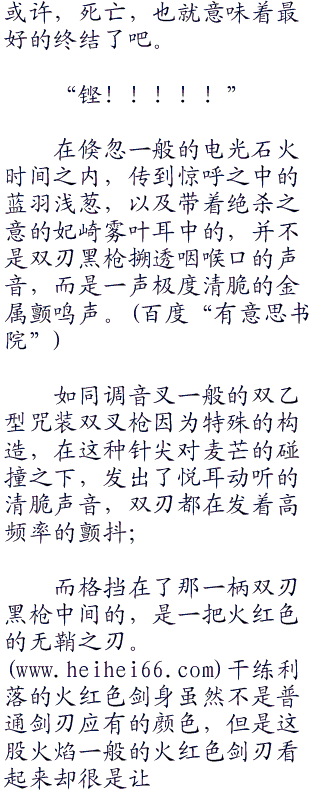 或许，死亡，也就意味着最
好的终结了吧。
“铿！！！！！”
在倏忽一般的电光石火
时间之内，传到惊呼之中的
蓝羽浅葱，以及带着绝杀之
意的妃崎雾叶耳中的，并不
是双刃黑枪捌透咽喉口的声
音，而是一声极度清脆的金
属颤鸣声。(百度“有意思书
院”)
如同调音叉一般的双乙
型咒装双叉枪因为特殊的构
造，在这种针尖对麦芒的碰
撞之下，发出了悦耳动听的
清脆声音，双刃都在发着高
频率的颤抖；
而格挡在了那一柄双刃
黑枪中间的，是一把火红色
的无鞘之刃。
(www.heihei66.com)干练利
落的火红色剑身虽然不是普
通剑刃应有的颜色，但是这
股火焰一般的火红色剑刃看
起来却很是让